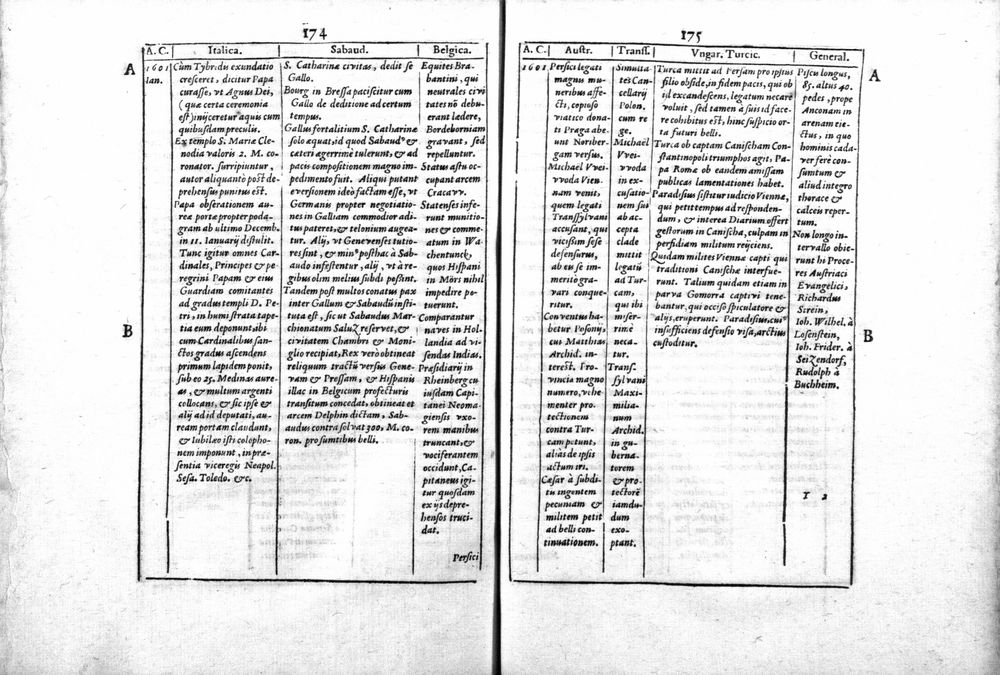 174
A. C.
Italica.
Sabaud.
Belgica.
A
B
1601
Ian.
Cùm Tybridis exundatio
cresceret, dicitur Papa
curasse, ut Agnus Dei,
(quæ certa ceremonia
est) inijceretur aquis cum
quibusdam preculis.
Ex templo S. Mariæ Cle-
nodia valoris 2. M. co-
ronator. surripiuntur,
autor aliquantò post de-
prehensus punitus est.
Papa obserationem au-
reæ portæ propter poda-
gram ab ultimo Decemb.
in 11. Ianuarij distulit.
Tunc igitur omnes Car-
dinales, Principes & pe-
regrini Papam & eius
Guardiam comitantes
ad gradus templi D. Pe-
tri, in humi strata tape-
tia eum deponunt, ibi
cum Cardinalibus san-
ctos gradus ascendens
primum lapidem ponit,
sub eo 25. Medinas aure-
as, & multum argenti
collocans, & sic ipse &
alij ad id deputati, au-
ream portam claudunt,
& Iubilæo isti colopho-
nem imponunt, in præ-
sentia viceregis Neapol.
Sesa. Toledo. &c.
S. Catharinæ civitas, dedit se
Gallo.
Bourg in Bressa paciscitur cum
Gallo de deditione ad certum
tempus.
Gallus fortalitium S. Catharinæ
solo æquat, id quod Sabaudꝰ &
cæteri ægerrimè tulerunt, & ad
pacis compositionem magno im-
pedimento fuit. Aliqui putant
eversionem ideò factam esse, vt
Germanis propter negotiatio-
nes in Galliam commodior adi-
tus pateret, & telonium augea-
tur. Alij, vt Genevenses tutio-
res sint, & minꝰ posthac à Sab-
audo infestentur, alij, vt à re-
gibus olim melius subdi possint.
Tandem post multos conatus pax
inter Gallum & Sabaudū insti-
tuta est, sic ut Sabaudus Mar-
chionatum Saluz reservet, &
civitatem Chambri & Moni-
glio recipiat, Rex verò obtineat
reliquum tractū versus Gene-
vam & Pressam, & Hispanis
illac in Belgicum profecturis
transitum concedat, obtineat et
arcem Delphin dictam, Sab-
audus contra solvat 300. M. co-
ron. pro sumtibus belli.
Equites Bra-
bantini, qui
neutrales civi
tates nō debu-
erant lædere,
Bordeborniam
gravant, sed
repelluntur.
Status astu oc-
cupant arcem
Cracavv.
Statenses infe-
runt munitio-
nes & comme-
atum in Wa-
chentunck,
quos Hispani
in Mörs nihil
impedire po-
tuerunt.
Comparantur
naves in Hol-
landia ad vi-
sendas Indias.
Præsidiarij in
Rheinberg cu
iusdam Capi-
tanei Neoma-
giensis vxo-
rem manibus
truncant, &
vociferantem
occidunt, Ca-
pitaneus igi-
tur quosdam
ex ijs depre-
hensos truci-
dat.
Persici
175
A. C.
Austr.
Transs.
Vngar. Turcic.
General.
A
B
1601
Persici legati
magnis mu-
neribus affe-
cti, copioso
viatico dona-
ti Praga abe-
unt Noriber-
gam versus.
Michael Vvei-
vvoda Vien-
nam venit,
quem legati
Transsylvani
accusant, qui
vicissim sese
defensurus,
ab eis se im-
meritò gra-
vari conque-
ritur.
Conventus ha-
betur Posonij,
cui Matthias
Archid. in-
terest. Pro-
vincia magno
numero, vehe-
menter pro-
tectionem
contra Tur-
cam petunt,
aliàs de ipsis
actum iri.
Cæsar à subdi-
tis ingentem
pecuniam &
militem petit
ad belli con-
tinuationem.
Simulta-
tes Can-
cellarij
Polon.
cum re
ge.
Michaël
Vvei-
vvoda
in ex-
cusatio-
nem sui
ab ac-
cepta
clade
mittit
legatū
ad Tur-
cam,
qui ibi
miser-
rimè
neca-
tur.
Trans-
sylvani
Maxi-
milia-
num
Archid.
in gu-
berna-
torem
& pro-
tectorē
iamdu-
dum
exo-
ptant.
Turca mittit ad Persam pro ipsius
filio obside, in fidem pacis, qui ob
id excandescens, legatum necare
voluit, sed tamen à suis id face-
re cohibitus est, hinc suspicio or-
ta futuri belli.
Turca ob captam Canischam Con-
stantinopoli triumphos agit, Pa-
pa Romæ ob eandem amissam
publicas lamentationes habet.
Paradisius sistitur iudicio Viennæ,
qui petit tempus ad responden-
dum, & interea Diarium offert
gestorum in Canischa, culpam in
perfidiam militum reijciens.
Quidam milites Viennæ capti qui
traditioni Canischæ interfue-
runt. Talium quidam etiam in
parva Gomorra captivi tene-
bantur, qui occiso speculatore &
alijs, eruperunt. Paradisius, cuiꝰ
insufficiens defensio visa, arctius
custoditur.
Piscis longus,
85. altus 40.
pedes, prope
Anconam in
arenam eie-
ctus, in quo
hominis cada-
ver ferè con-
sumtum &
aliud integro
thorace &
calceis reper-
tum.
Non longo in-
tervallo obie-
runt hi Proce-
res Austriaci
Evangelici,
Richardus
Strein,
Ioh. Wilhel. à
Losenstein,
Ioh. Frider. à
Seizendorf,
Rudolph à
Buchheim.
T 2